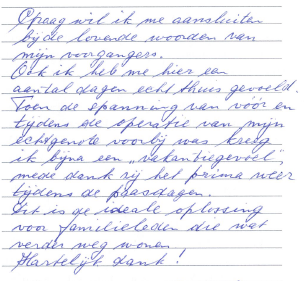 Graag wil ik me aansluiten
bij de lovende woorden van
mijn voorgangers.
Ook ik heb me hier een
aantal dagen echt thuis gevoeld.
Toen de spanning van vóór en
tijdens de operatie van mijn
echtgenote voorbij was kreeg
ik bijna een „vakantiegevoel",
mede dank zij het prima weer
tijdens de paasdagen.
Dit is de ideale oplossing
voor familieleden die wat
verder weg wonen.
Hartelijk dank!